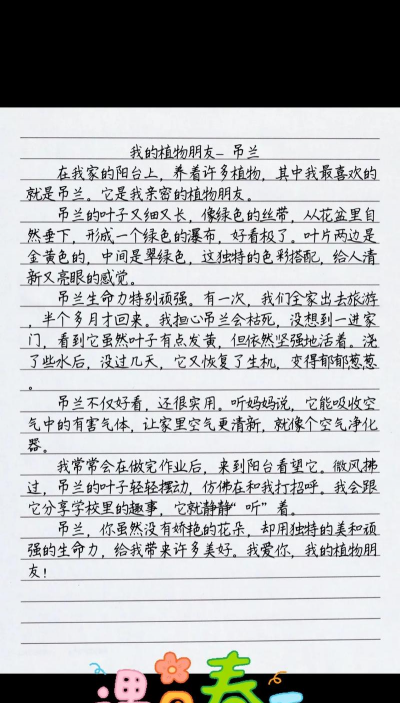 我的植物朋友–吊兰
在我家的阳台上，养着许多植物，其中我最喜欢的
就是吊兰。它是我亲密的植物朋友。
吊兰的叶子又细又长，像绿色的丝带，从花盆里自
然垂下，形成一个绿色的瀑布，好看极了。叶片两边是
金黄色的，中间是翠绿色，这独特的色彩搭配，给人清
新又亮眼的感觉。
吊兰生命力特别顽强。有一次，我们全家出去旅游
，半个多月才回来。我担心吊兰会枯死，没想到一进家
门，看到它虽然叶子有点发黄，但依然坚强地活着。浇
了些水后，没过几天，它又恢复了生机，变得郁郁葱葱
。
吊兰不仅好看，还很实用。听妈妈说，它能吸收空
气中的有害气体，让家里空气更清新，就像个空气净化
器。
我常常会在做完作业后，来到阳台看望它。微风拂
过，吊兰的叶子轻轻摆动，仿佛在和我打招呼。我会跟
它分享学校里的趣事，它就静静“听”着。
吊兰，你虽然没有娇艳的花朵，却用独特的美和顽
强的生命力，给我带来许多美好。我爱你，我的植物朋
友！